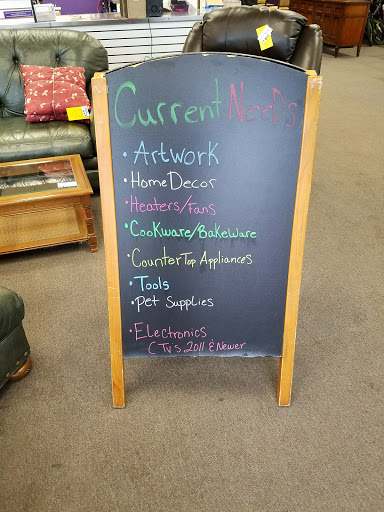 Current Needs
• Artwork
• Home Decor
• Heaters/Fans
• Cookware/Bakeware
• Counter Top Appliances
• Tools
• Pet Supplies
• Electronics
( Tv's 2011 & Newer